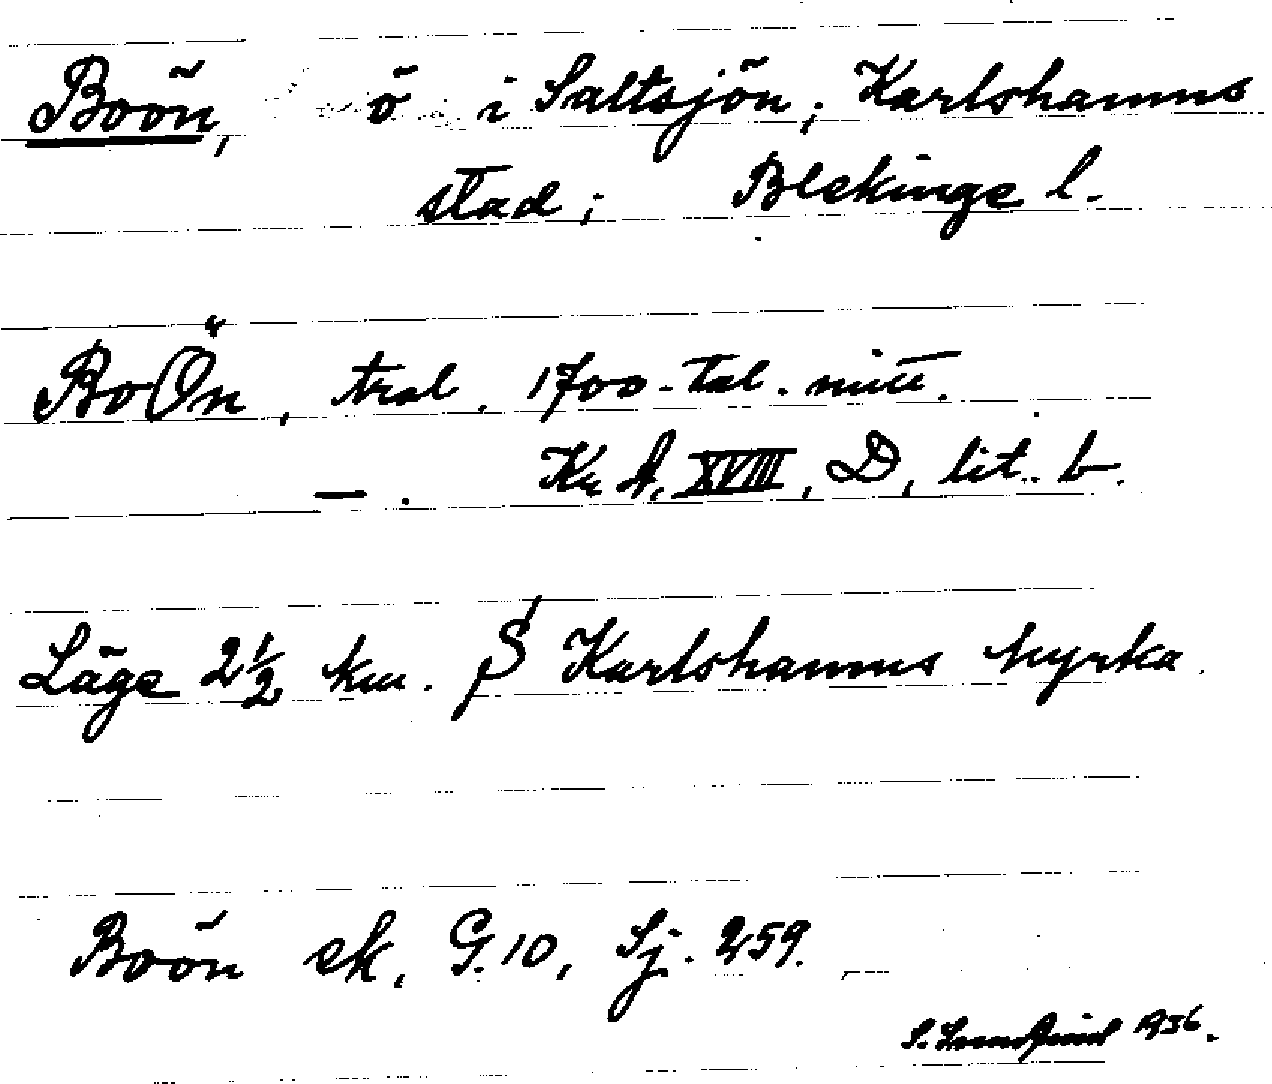 Boön, ö i Saltsjön; Karlshamns
stad; Blekinge l.
BoÖn, tral. 1700-tal. mitt.
—. Kr A, XVIII, D, lit. b.
Läge 2½ km. S Karlshamns kyrka.
Boön ek. G. 10, Sj. 259.
S. 1936.